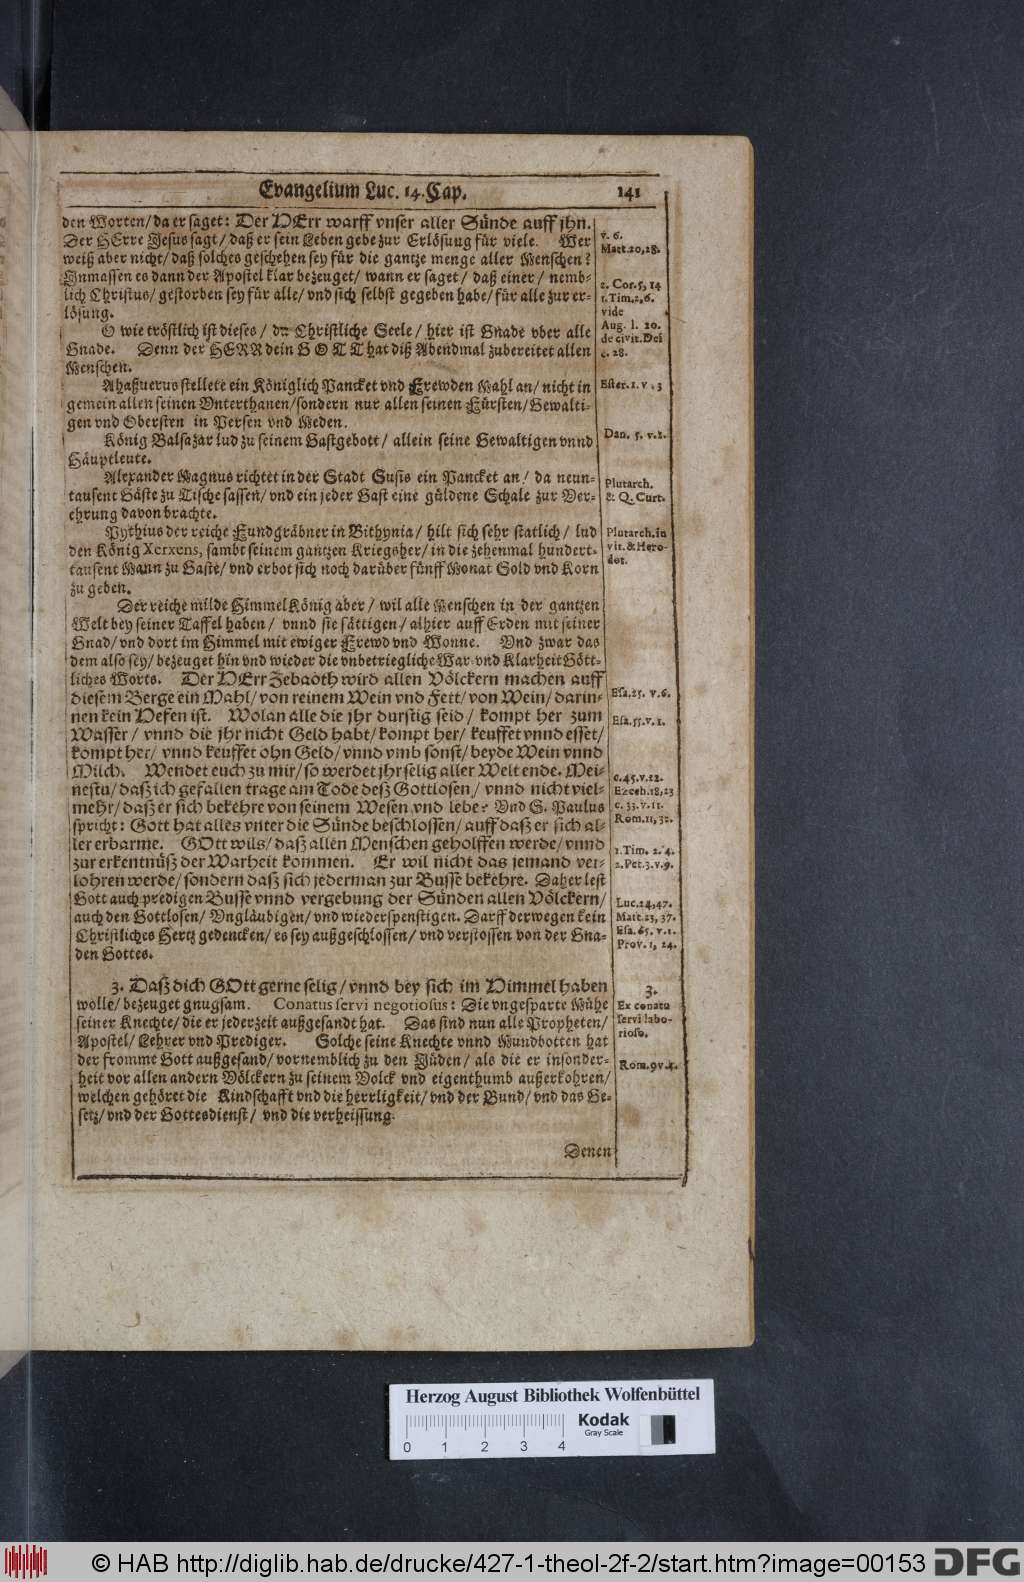 Evangelium Luc. 14. Cap. 141
den Worten/ da er saget: Der HErr warff vnser aller Sünde auff jhn.
Der HErre Jesus sagt/ daß er sein Leben gebe zur Erlösung für viele. Wer
weiß aber nicht/ daß solches geschehen sey für die gantze menge aller Menschen?
Inmassen es dann der Apostel klar bezeuget/ wann er saget/ daß einer/ nemb-
lich Christus/ gestorben sey für alle/ vnd sich selbst gegeben habe/ für alle zur er-
lösung.
O wie tröstlich ist dieses/ du Christliche Seele/ hier ist Gnade vber alle
Gnade. Denn der HERR dein GOTT hat diß Abendmal zubereitet allen
Menschen.
Ahaßuerus stellete ein Königlich Pancket vnd Frewden Mahl an/ nicht in
gemein allen seinen Vnterthanen/ sondern nur allen seinen Fürsten/ Gewalti-
gen vnd Obersten in Persen vnd Meden.
König Balsazar lud zu seinem Gastgebott/ allein seine Gewaltigen vnnd
Häuptleute.
Alexander Magnus richtet in der Stadt Susis ein Pancket an/ da neun-
tausent Gäste zu Tische sassen/ vnd ein jeder Gast eine güldene Schale zur Ver-
ehrung davon brachte.
Pythius der reiche Fundgräbner in Bithynia/ hilt sich sehr statlich/ lud
den König Xerxens, sambt seinem gantzen Kriegsher/ in die zehenmal hundert-
tausent Mann zu Gaste/ vnd erbot sich noch darüber fünff Monat Sold vnd Korn
zu geben.
Der reiche milde Himmel König aber/ wil alle Menschen in der gantzen
Welt bey seiner Taffel haben/ vnnd sie sättigen/ alhier auff Erden mit seiner
Gnad/ vnd dort im Himmel mit ewiger Frewd vnd Wonne. Vnd zwar das
dem also sey/ bezeuget hin vnd wieder die vnbetriegliche War- vnd Klarheit Gött-
liches Worts. Der HErr Zebaoth wird allen Völckern machen auff
diesem Berge ein Mahl/ von reinem Wein vnd Fett/ von Wein/ darin-
nen kein Hefen ist. Wolan alle die jhr durstig seid/ kompt her zum
Wasser/ vnnd die jhr nicht Geld habt/ kompt her/ keuffet vnnd esset/
kompt her/ vnnd keuffet ohn Geld/ vnnd vmb sonst/ beyde Wein vnnd
Milch. Wendet euch zu mir/ so werdet jhr selig aller Welt ende. Mei-
nestu/ daß ich gefallen trage am Tode deß Gottlosen/ vnnd nicht viel-
mehr/ daß er sich bekehre von seinem Wesen vnd lebe? Vnd S. Paulus
spricht: Gott hat alles vnter die Sünde beschlossen/ auff daß er sich al-
ler erbarme. GOtt wils/ daß allen Menschen geholffen werde/ vnnd
zur erkentnüß der Warheit kommen. Er wil nicht das jemand ver-
lohren werde/ sondern daß sich jederman zur Busse bekehre. Daher lest
Gott auch predigen Busse vnnd vergebung der Sünden allen Völckern/
auch den Gottlosen/ Vngläubigen/ vnd wiederspenstigen. Darff derwegen kein
Christliches Hertz gedencken/ es sey außgeschlossen/ vnd verstossen von der Gna-
den Gottes.
3. Daß dich GOtt gerne selig/ vnnd bey sich im Himmel haben
wolle/ bezeuget gnugsam. Conatus servi negotiosus: Die vngesparte Mühe
seiner Knechte/ die er jederzeit außgesandt hat. Das sind nun alle Propheten/
Apostel/ Lehrer vnd Prediger. Solche seine Knechte vnnd Mundbotten hat
der fromme Gott außgesand/ vornemblich zu den Jüden/ als die er insonder-
heit vor allen andern Völckern zu seinem Volck vnd eigenthumb außerkohren/
welchen gehöret die Kindschafft vnd die herrligkeit/ vnd der Bund/ vnd das Ge-
setz/ vnd der Gottesdienst/ vnd die verheissung.
Denen
v. 6.
Matt.20,28.
2. Cor.5,14
1.Tim.2,6.
vide
Aug. l. 20.
de civit.Dei
c. 28.
Ester.1.v.3
Dan. 5.v.1.
Plutarch.
& Q. Curt.
Plutarch.in
vit.&Hero-
dot.
Esa.25.v.6.
Esa.55.v.1.
c.45.v.22.
Ezech.18,23
c. 33.v.11.
Rom.11,32.
1.Tim. 2.4.
2.Pet.3.v.9.
Luc.24,47.
Matt.23,37.
Esa.65.v.1.
Prov.1,24.
3.
Ex conatu
servi labo-
rioso.
Rom.9v.4.
Herzog August Bibliothek Wolfenbüttel
Kodak
Gray Scale
0 1 2 3 4
© HAB http://diglib.hab.de/drucke/427-1-theol-2f-2/start.htm?image=00153 DFG